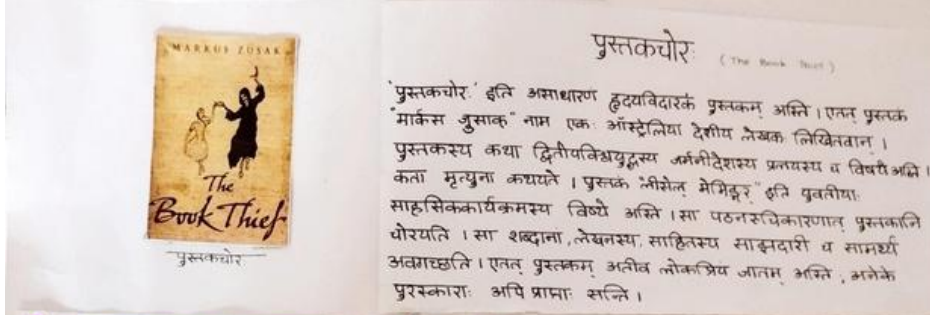 MARKUS ZUSAK
The
Book Thief
पुस्तकचोर
पुस्तकचोरः (The Book Thief)
"पुस्तकचोरः" इति असाधारणं हृदयविदारकं पुस्तकम् अस्ति । एतत् पुस्तकं
"मार्कस जुसाक्" नाम एकः ऑस्ट्रेलिया देशीय लेखक लिखितवान् ।
पुस्तकस्य कथा द्वितीयविश्वयुद्धस्य जर्मनीदेशस्य प्रलयस्य च विषये अस्ति ।
कता मृत्युना कथयते । पुस्तकं "लीसेल मेमिङ्गर्" इति युवतीयाः
साहसिककार्यक्रमस्य विषये अस्ति । सा पठनरुचिकारणात् पुस्तकानि
चोरयति । सा शब्दाना, लेखनस्य, साहितस्य साझदारी च सामर्थ्यं
अवगच्छति । एतत् पुस्तकम् अतीव लोकप्रियं जातम् अस्ति , अनेके
पुरस्काराः अपि प्राप्ताः सन्ति ।